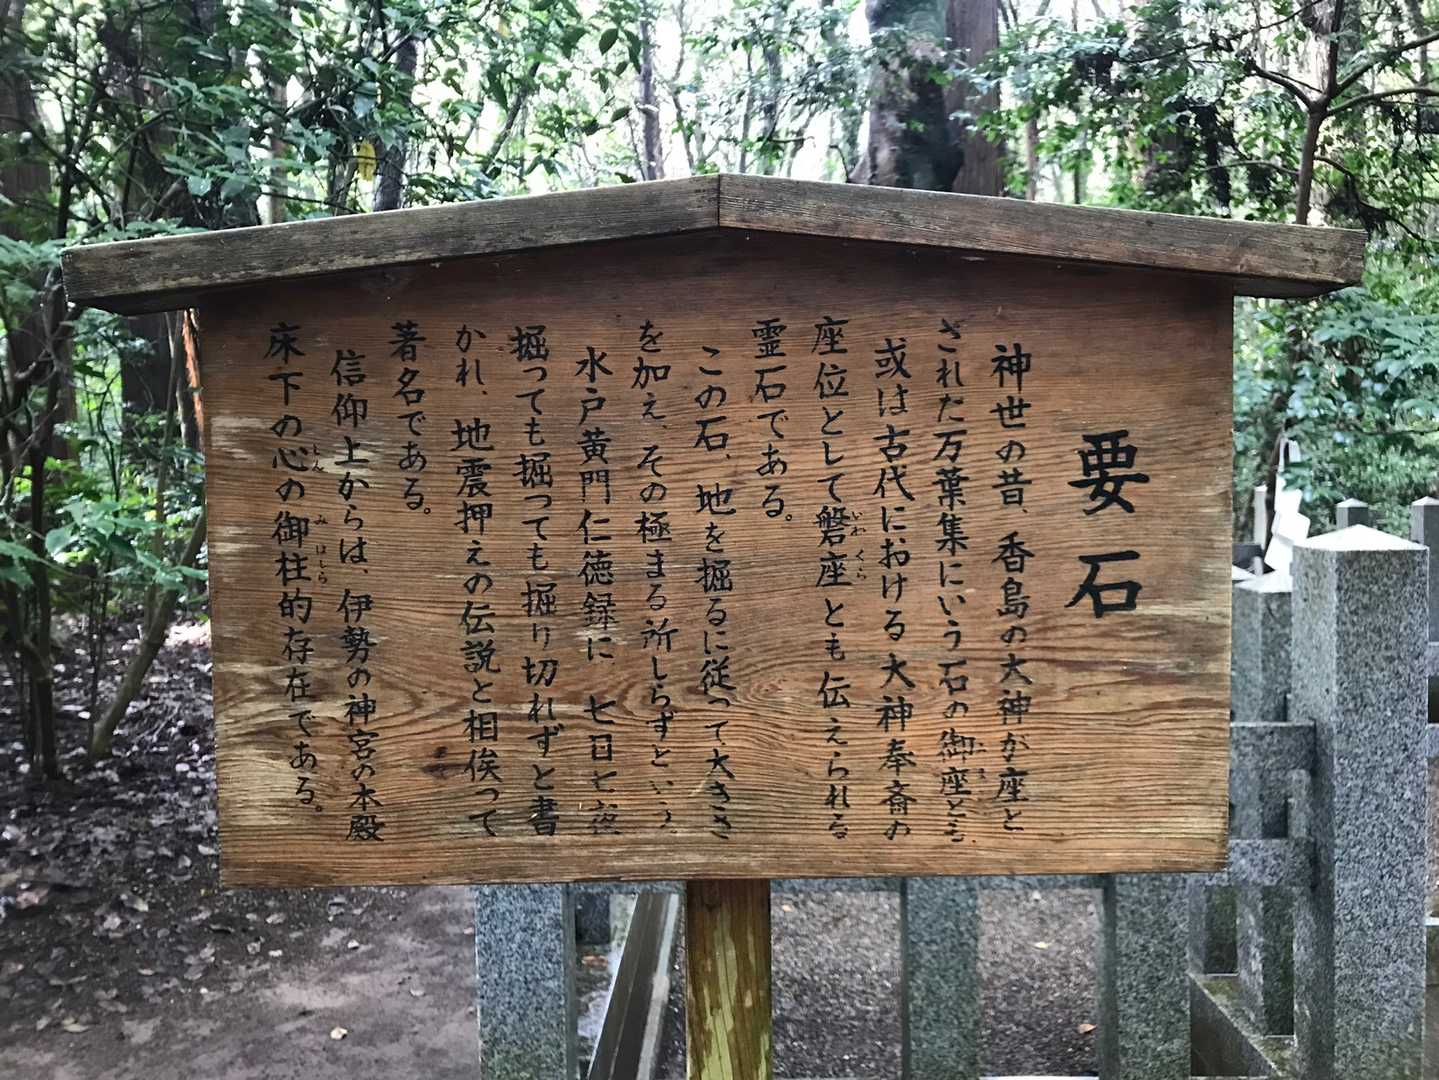 要石
神世の昔、香島の大神が座と
された万葉集にいう石の御座とも
或は古代における大神奉斎の
座位として磐座とも伝えられる
霊石である。
この石、地を掘るに従って大きさ
を加え、その極まる所しらずという。
水戸黄門仁徳録に七日七夜
掘っても掘っても掘り切れずと書
かれ、地震押えの伝説と相俟って
著名である。
信仰上からは、伊勢の神宮の本殿
床下の心の御柱的存在である。